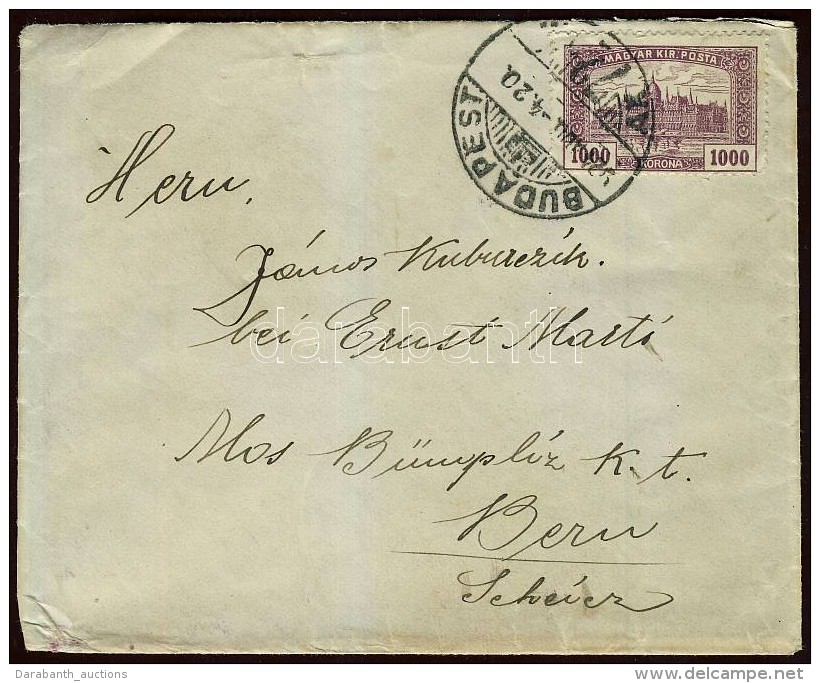 MAGYAR KIR. POSTA
1000 KORONA 1000
BUDAPEST
4.20.
Herrn,
János Kuburczik.
bei Ernst Marti
Mos Bümpliz K. t.
Bern
Scheicz
darabanth
Darabanth_auctions
delcampe.net